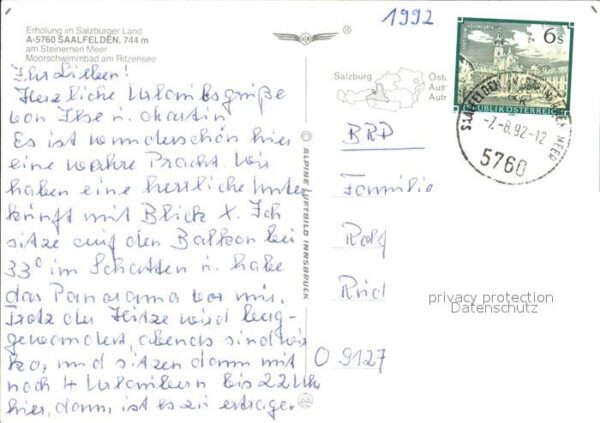 Erholung im Salzburger Land
A-5760 SAALFELDEN, 744 m
am Steinernen Meer
Moorschwimmbad am Ritzensee
Ihr Lieben!
Herzliche Urlaubsgrüße
von Ilse u. Martin
Es ist wunderschön hier
eine wahre Pracht. Wir
haben eine herrliche Unter
kunft mit Blick X. Ich
sitze auf den Balkon bei
33° im Schatten u. habe
das Panorama vor mir.
Trotz der Hitze wird berg-
gewandert, abends sind wir
ko, und sitzen dann mit
noch 4 Urlaubern bis 22 Uhr
hier, dann ist es zu ertragen.
© ALPINE LUFTBILD INNSBRUCK
1992
Salzburg
Öste
Aus
Auto
6s
REPUBLIK ÖSTERREICH
SAALFELDEN AM STEINERNEN MEER
-7.-8.92-12
5760
BRD
Familie
Rolf
Ried
privacy protection
Datenschutz
O 9127